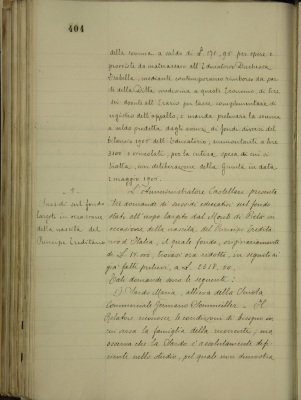 404
della somma a saldo di L. 171,95 per opere e
provviste da materassaio all'Educatorio Duchessa
Isabella, mediante contemporaneo rimborso da par
te della Ditta medesima a questo Economo, di lire
tri dovute all'Erario per tassa complementare di
registro dell'appalto, e manda prelevare la somma
a saldo predetta dagli avanzi di fondi diversi del
bilancio 1905 dell'Educatorio, ammontanti a lire
e vincolati, per la cifra, spesa di cui si
tratta, con deliberazione della Giunta in data
2 maggio 1906.
- 9 -
Sussidi sul fondo
largiti in occasione
della nascita del
Principe Ereditario
L'Amministratore Castellani presenta
domande di sussidi educativi sul fondo
stati all'uopo largito dal Monte di Pietà in
occasione della nascita del Principe Eredita
rio d'Italia, il quale fondo, originariamente
di L. trovasi ora ridotto, in seguito ai
già fatti prelievi, a L.
Dette domande sono le seguenti:
1) Sardo Maria, allieva della Scuola
Commerciale Germano Sommeiller. - Il
Relatore riconosce le condizioni di bisogno in
cui versa la famiglia della ricorrente, ma
osserva che la Sardo è assolutamente defi
ciente nello studio, pel quale non dimostra